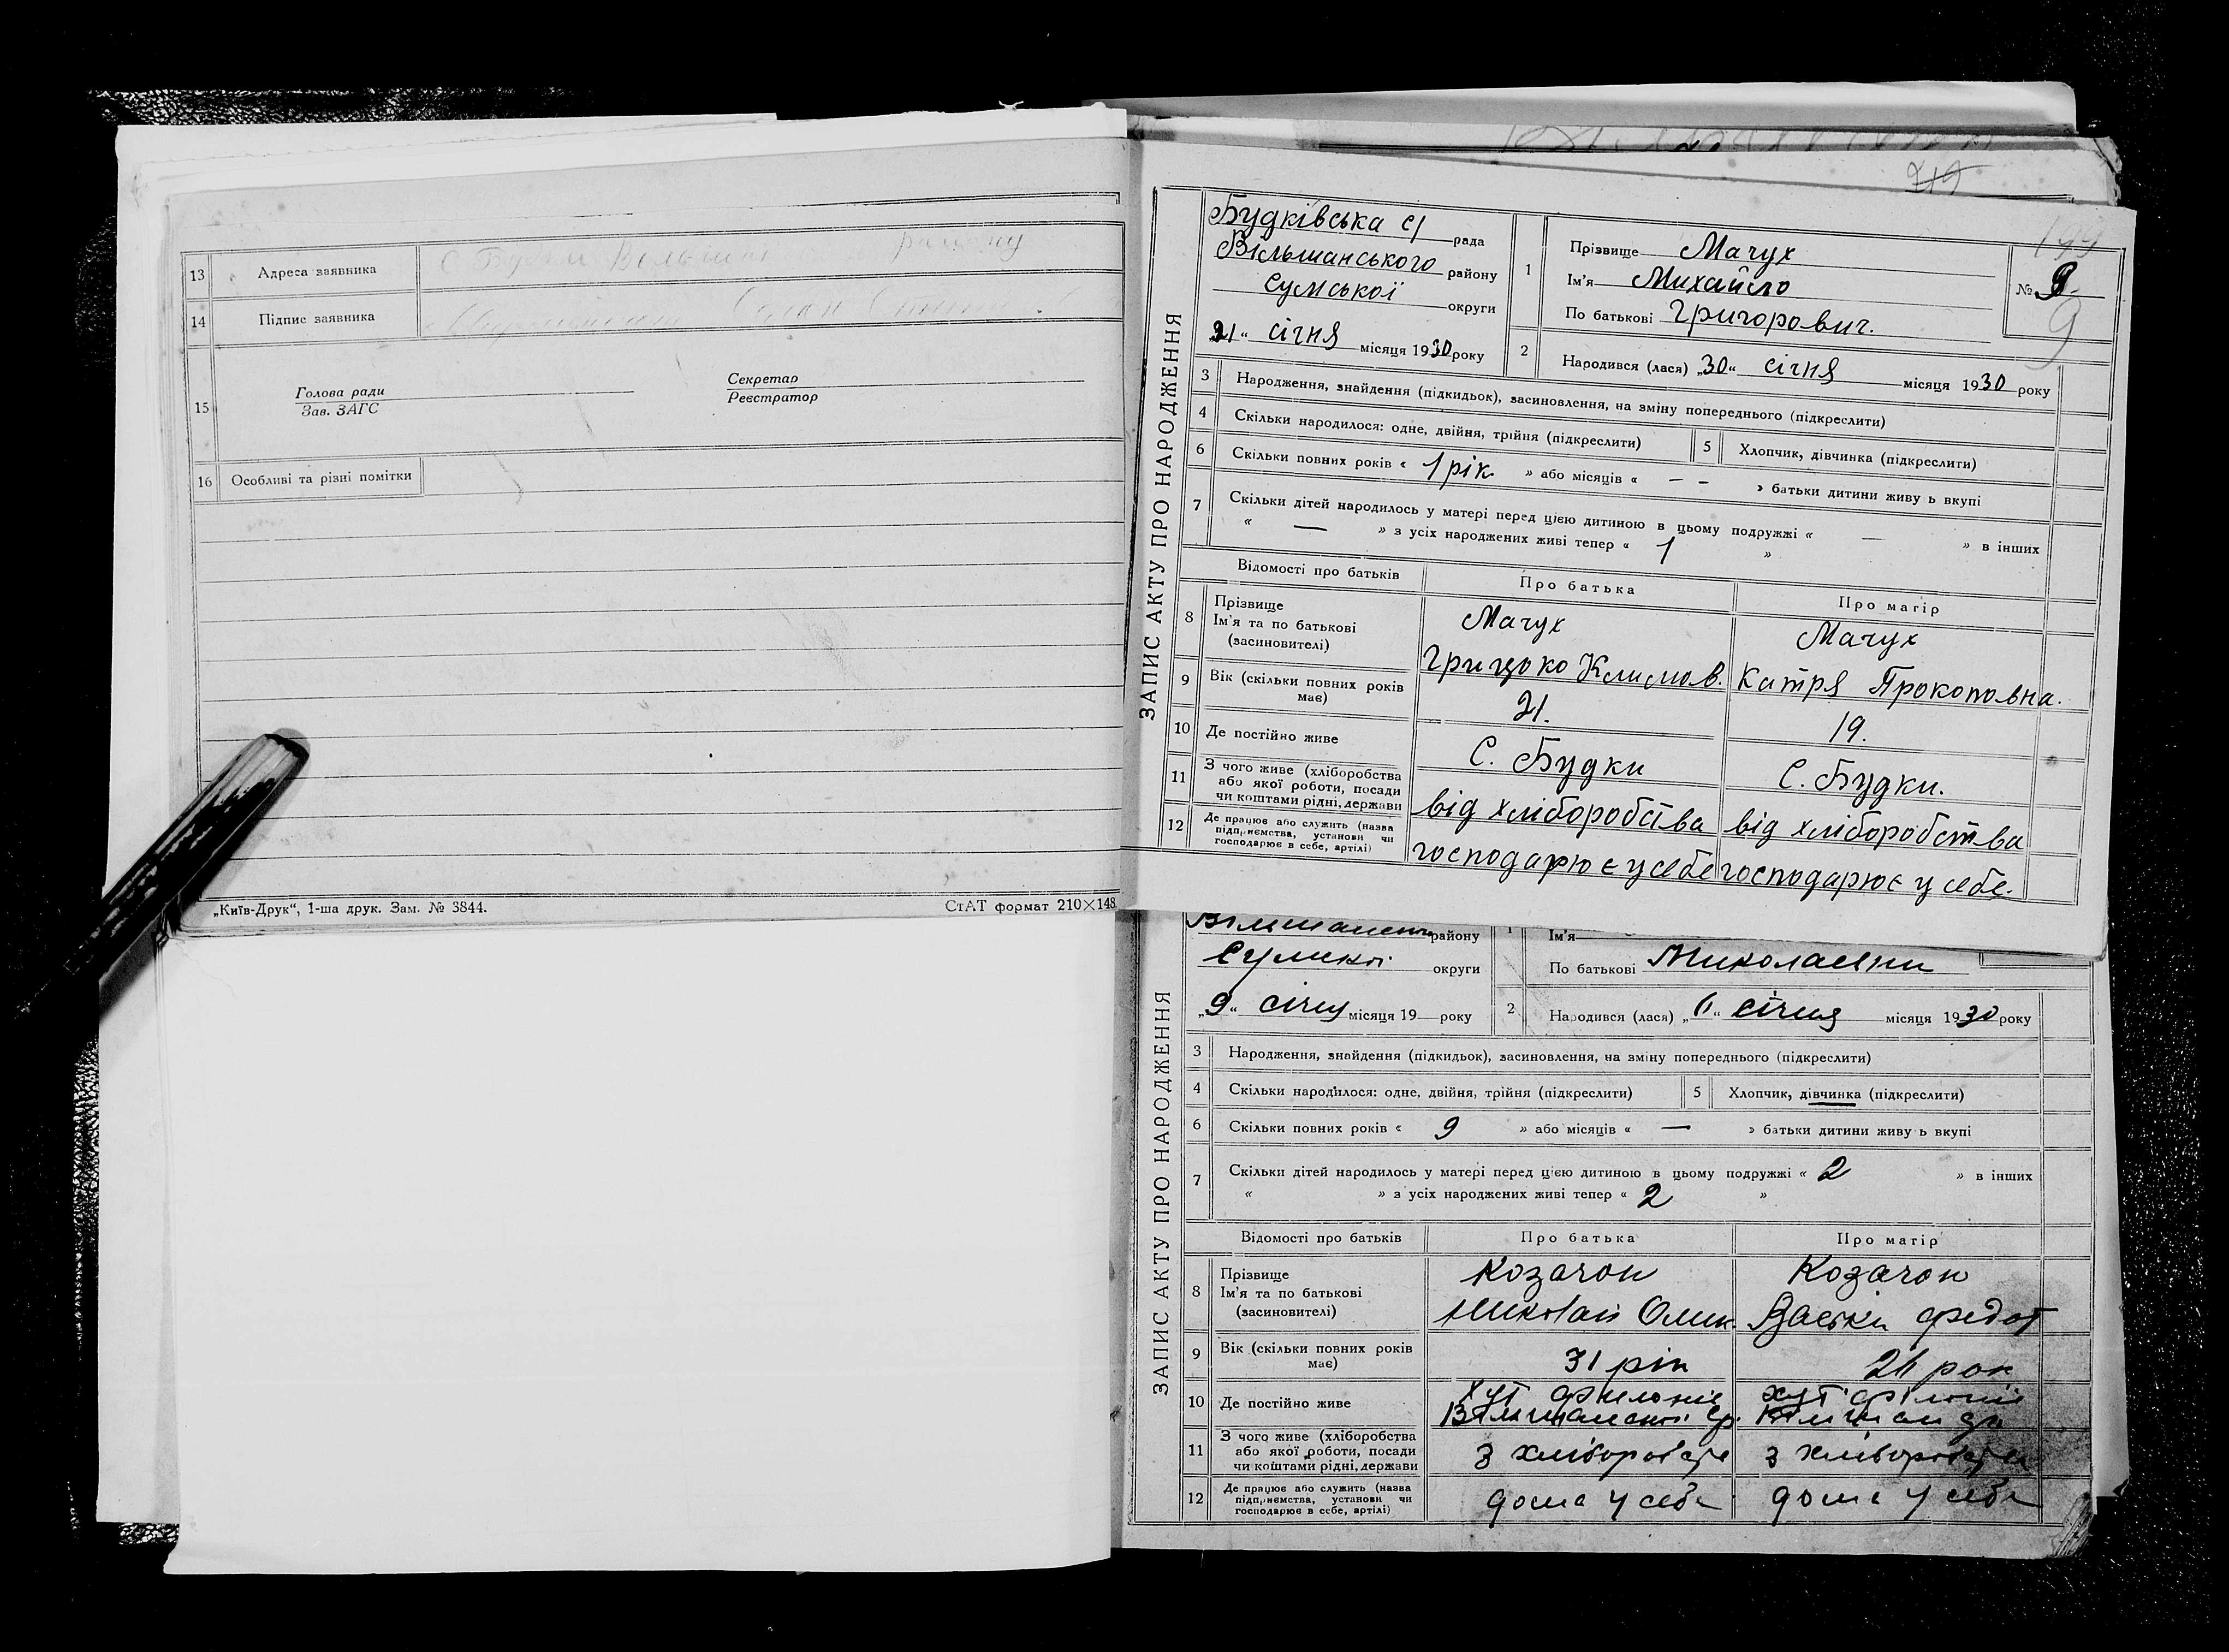 13 Адреса заявника
14 Підпис заявника
15 Голова ради
Зав. ЗАГС
Секретар
Реєстратор
16 Особливі та різні помітки
„Київ-Друк“, 1-ша друк. Зам. № 3844.
СтАТ формат 210×148
719
199
ЗАПИС АКТУ ПРО НАРОДЖЕННЯ
Будківська с/ рада
Вільшанського району
Сумської округи
„21“ січня місяця 1930 року
1 Прізвище Мачух
Ім'я Михайло
По батькові Григорович.
№ 9
9
2 Народився (лася) „30“ січня місяця 1930 року
3 Народження, знайдення (підкидьок), засиновлення, на зміну попереднього (підкреслити)
4 Скільки народилося: одне, двійня, трійня (підкреслити) 5 Хлопчик, дівчинка (підкреслити)
6 Скільки повних років « 1 рік » або місяців « – – » батьки дитини живу ь вкупі
7 Скільки дітей народилось у матері перед цією дитиною в цьому подружжі « — » в інших
« — » з усіх народжених живі тепер « 1 »
Відомості про батьків Про батька Про матір
8 Прізвище
Ім'я та по батькові
(засиновителі)
Мачух
Грицько Климов.
Мачух
Катря Прокоповна.
9 Вік (скільки повних років
має)
21.
19.
10 Де постійно живе С. Будки С. Будки.
11 З чого живе (хліборобства
або якої роботи, посади
чи коштами рідні, держави
від хліборобства від хліборобства
12 Де працює або служить (назва
підприємства, установи чи
господарює в себе, артілі)
господарює у себе господарює у себе.
ЗАПИС АКТУ ПРО НАРОДЖЕННЯ
району
округи
„9“ січня місяця 19 року
1 Ім'я
По батькові Миколаевни
2 Народився (лася) січня місяця 1930 року
3 Народження, знайдення (підкидьок), засиновлення, на зміну попереднього (підкреслити)
4 Скільки народилося: одне, двійня, трійня (підкреслити) 5 Хлопчик, дівчинка (підкреслити)
6 Скільки повних років « 9 » або місяців « — » батьки дитини живу ь вкупі
7 Скільки дітей народилось у матері перед цією дитиною в цьому подружжі « 2 » в інших
« » з усіх народжених живі тепер « 2 »
Відомості про батьків Про батька Про матір
8 Прізвище
Ім'я та по батькові
(засиновителі)
Козачок
Николай
Козачок
Федот
9 Вік (скільки повних років
має)
31 рік
рок
10 Де постійно живе
хут
хут
11 З чого живе (хліборобства
або якої роботи, посади
чи коштами рідні, держави
з хліборобства з хліборобства
12 Де працює або служить (назва
підприємства, установи чи
господарює в себе, артілі)
дома у себе дома у себе